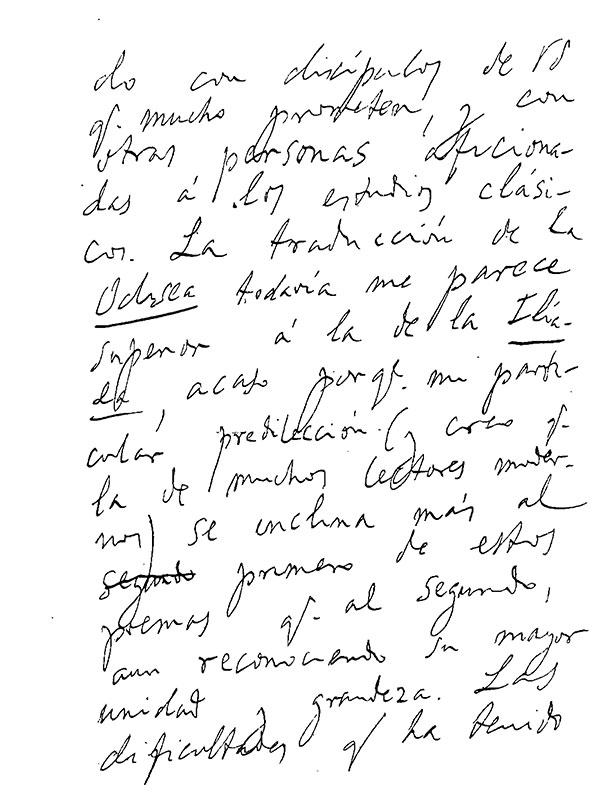 do con discípulos de Vd
q.. mucho prometen, y con
otras personas aficiona-
das á los estudios clási-
cos. La traducción de la
Odisea todavía me parece
superior á la de la Ilía-
da, acaso porq.. mi parti-
cular predilección (y creo q..
la de muchos lectores moder-
nos) se inclina más al
segundo primero de estos
poemas q.. al segundo,
aun reconociendo su mayor
unidad y grandeza. Las
dificultades q/ ha tenido